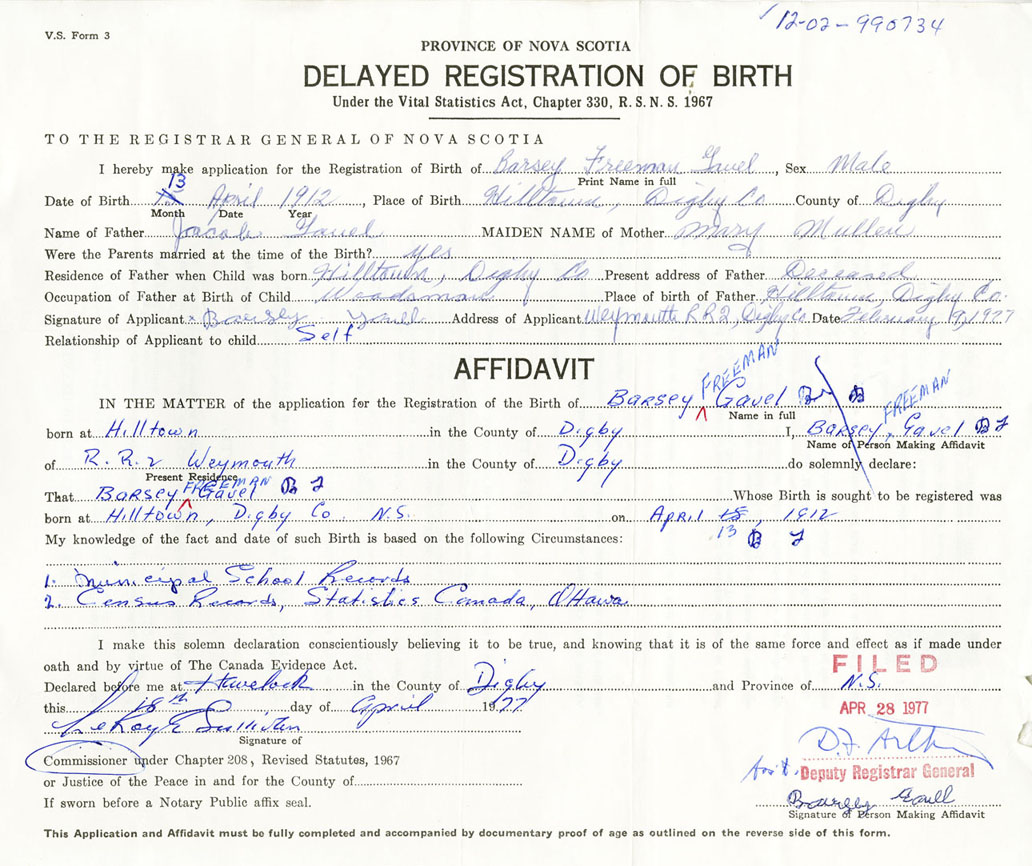 V.S. Form 3
12-02-990734
PROVINCE OF NOVA SCOTIA
DELAYED REGISTRATION OF BIRTH
Under the Vital Statistics Act, Chapter 330, R.S.N.S. 1967
TO THE REGISTRAR GENERAL OF NOVA SCOTIA
I hereby make application for the Registration of Birth of Barsey Freeman Gavel, Sex Male
Print Name in full
13
Date of Birth April 1912, Place of Birth Hilltown, Digby Co County of Digby
Month Date Year
Name of Father Jacob Gavel MAIDEN NAME of Mother Mary Mullen
Were the Parents married at the time of the Birth? yes
Residence of Father when Child was born Hilltown, Digby Co Present address of Father Deceased
Occupation of Father at Birth of Child Woodsman Place of birth of Father Hilltown, Digby Co.
Signature of Applicant x Barsey Gavell Address of Applicant Weymouth RR2, Digby Co Date February 9, 1977
Relationship of Applicant to child Self
AFFIDAVIT
FREEMAN
FREEMAN
IN THE MATTER of the application for the Registration of the Birth of Barsey Gavel
Name in full
born at Hilltown in the County of Digby I, Barsey, Gavel
Name of Person Making Affidavit
of R.R.2 Weymouth in the County of Digby do solemnly declare:
Present Residence
FREEMAN
That Barsey Gavel Whose Birth is sought to be registered was
born at Hilltown, Digby Co. N.S. on April 18, 1912
13
My knowledge of the fact and date of such Birth is based on the following Circumstances:
1. Municipal School Records
2. Census Records, Statistics Canada, Ottawa
I make this solemn declaration conscientiously believing it to be true, and knowing that it is of the same force and effect as if made under
oath and by virtue of The Canada Evidence Act.
FILED
Declared before me at Havelock in the County of Digby and Province of N.S.
this 18th day of April 1977
APR 28 1977
Signature of
Commissioner under Chapter 208, Revised Statutes, 1967
Deputy Registrar General
or Justice of the Peace in and for the County of
Barsey Gavell
If sworn before a Notary Public affix seal.
Signature of Person Making Affidavit
This Application and Affidavit must be fully completed and accompanied by documentary proof of age as outlined on the reverse side of this form.